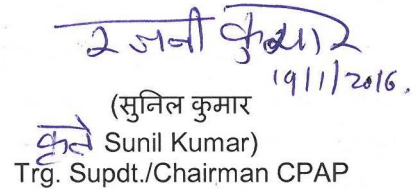 रजनी कुमार
19/1/2016.
(सुनिल कुमार
कृते Sunil Kumar)
Trg. Supdt./Chairman CPAP